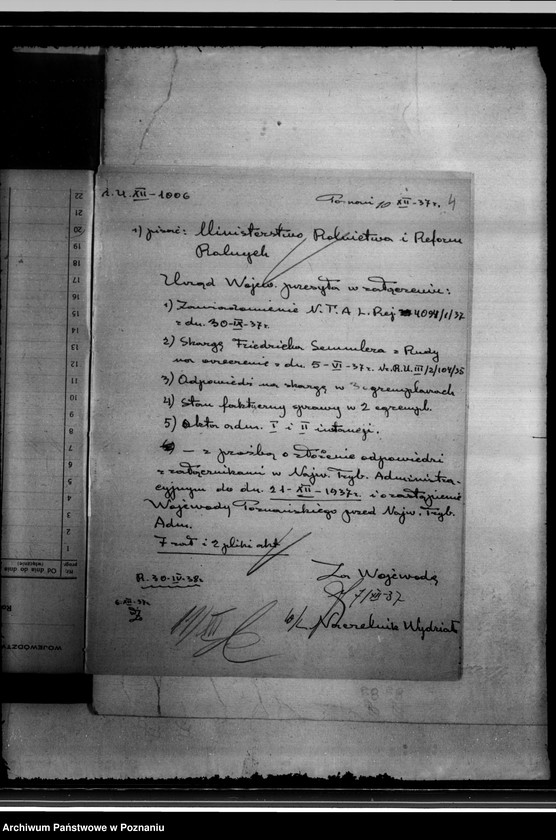 A.U.XII-1006
Poznań 10 XII-37r. 4
1) pisać: Ministerstwo Rolnictwa i Reform
Rolnych
Urząd Wojew. przesyła w załączeniu:
1) Zawiadomienie N.T.A L.Rej 4094/1/37
z dn. 30-IX-37r.
2) Skargę Friedricha Semmlera z Rudy
na orzeczenie z dn. 5-VI-37r. Nr.A.U.III/2/104/35
3) Odpowiedzi na skargę w 3 egzemplarzach
4) Stan faktyczny sprawy w 2 egzempl.
5) Akta adm. I i II instancji.
— z prośbą o złożenie odpowiedzi
z załącznikami w Najw. Tryb. Administra-
cyjnym do dn. 21-XII-1937r. i o zastąpienie
Wojewody Poznańskiego przed Najw. Tryb.
Adm.
7 zał i 2 pliki akt
A. 30-IV-38r.
Za Wojewodę
7/XII-37
6-XII-37r.
19/XII
Naczelnik Wydziału
22
21
20
19
18
17
16
15
14
13
12
11
10
9
8
7
6
5
4
3
2
1
Od dnia do dnia
WOJEWÓDZTW
Archiwum Państwowe w Poznaniu